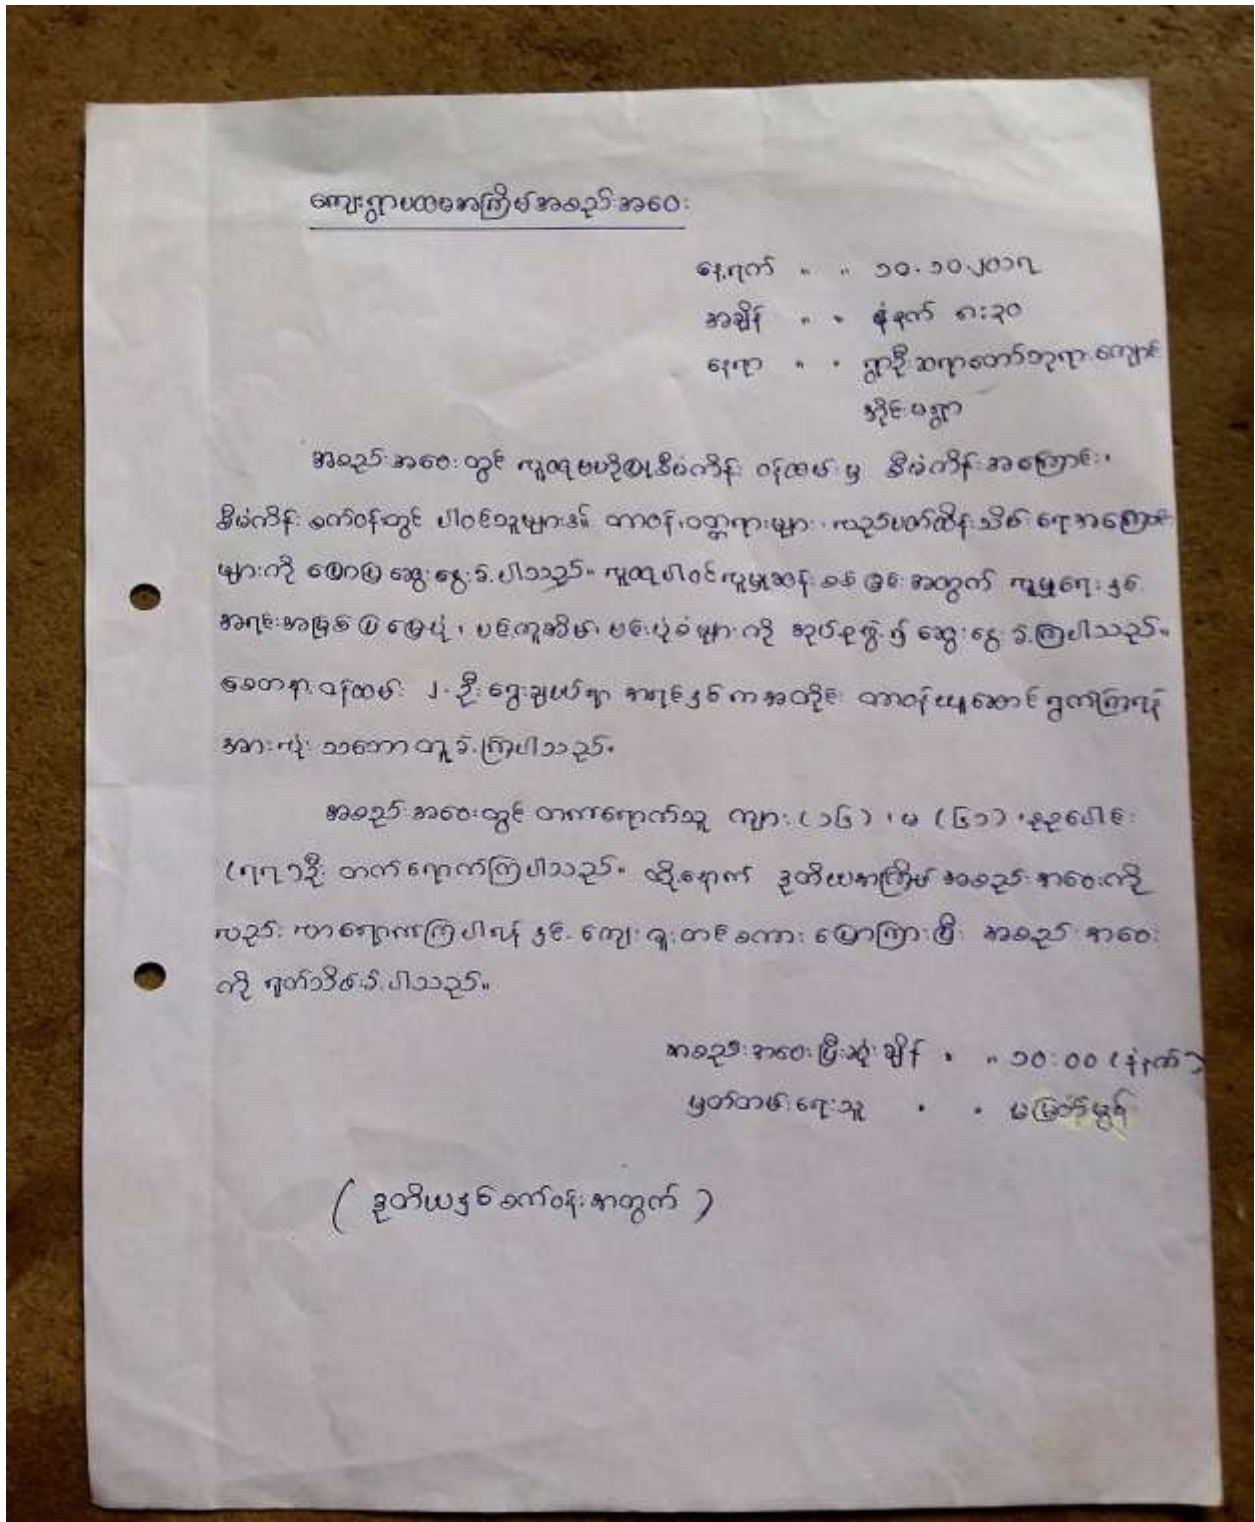 ကျေးရွာပထမအကြိမ်အစည်းအဝေး
နေ့ရက် " " ၁၀.၁၀.၂၀၁၇
အချိန် " " နံနက် ၈း၃၀
နေရာ " " ရွာဦးဆရာတော်ဘုရားကျောင်း
အိုင်းမရွာ
အစည်းအဝေးတွင် လူထုဗဟိုပြုစီမံကိန်း ဝန်ထမ်းမှ စီမံကိန်းအကြောင်း၊
စီမံကိန်းစက်ဝန်းတွင် ပါဝင်သူများ၏ တာဝန်ဝတ္တရားများ၊ လည်ပတ်ထိန်းသိမ်းရေးအကြောင်း
များကို ပြောပြဆွေးနွေးခဲ့ပါသည်။ လူထုပါဝင်လူမှုဆန်းစစ်ခြင်းအတွက် လူမှုရေးနှင့်
အရင်းအမြစ်ပြမြေပုံ၊ ပင်ကူအိမ်၊ ပင်းပုံစံများကို အုပ်စုဖွဲ့၍ ဆွေးနွေးခဲ့ကြပါသည်။
စေတနာ့ဝန်ထမ်း ၂ ဦး ရွေးချယ်ရာ အရင်နှစ်ကအတိုင်း တာဝန်ယူဆောင်ရွက်ကြရန်
အားလုံး သဘောတူခဲ့ကြပါသည်။
အစည်းအဝေးတွင် တက်ရောက်သူ ကျား (၁၆) ၊ မ (၆၁) ၊ စုစုပေါင်း
(၇၇) ဦး တက်ရောက်ကြပါသည်။ ထို့နောက် ဒုတိယအကြိမ် အစည်းအဝေးကို
လည်း လာရောက်ကြပါရန်နှင့် ကျေးဇူးတင်စကား ပြောကြားပြီး အစည်းအဝေး
ကို ရုတ်သိမ်းခဲ့ပါသည်။
အစည်းအဝေးပြီးဆုံးချိန် " " ၁၀:၀၀ (နံနက်)
မှတ်တမ်းရေးသူ " " မမြတ်မွန်
( ဒုတိယနှစ်စက်ဝန်းအတွက် )